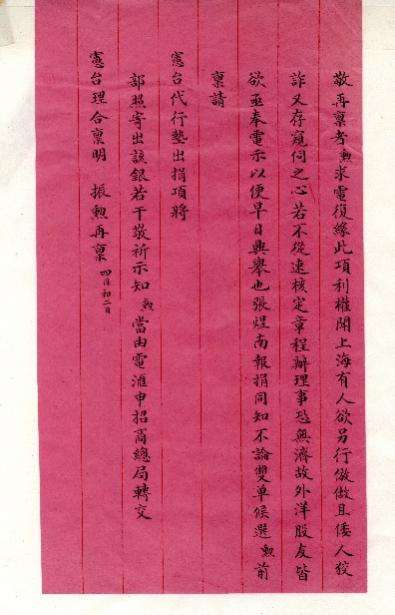 敬再禀者勲求電復緣此項利權聞上海有人欲另行倣做且倭人狡
詐又存窺伺之心若不從速核定章程辦理事恐無濟故外洋股友皆
欲亟奉電示以便早日興舉也張煜南報捐同知不論雙單候選勲前
禀請
憲台代行墊出捐項將
部照寄出該銀若干敬祈示知勲當由電滙申招商總局轉交
憲台理合禀明 振勲再禀 四月初二日